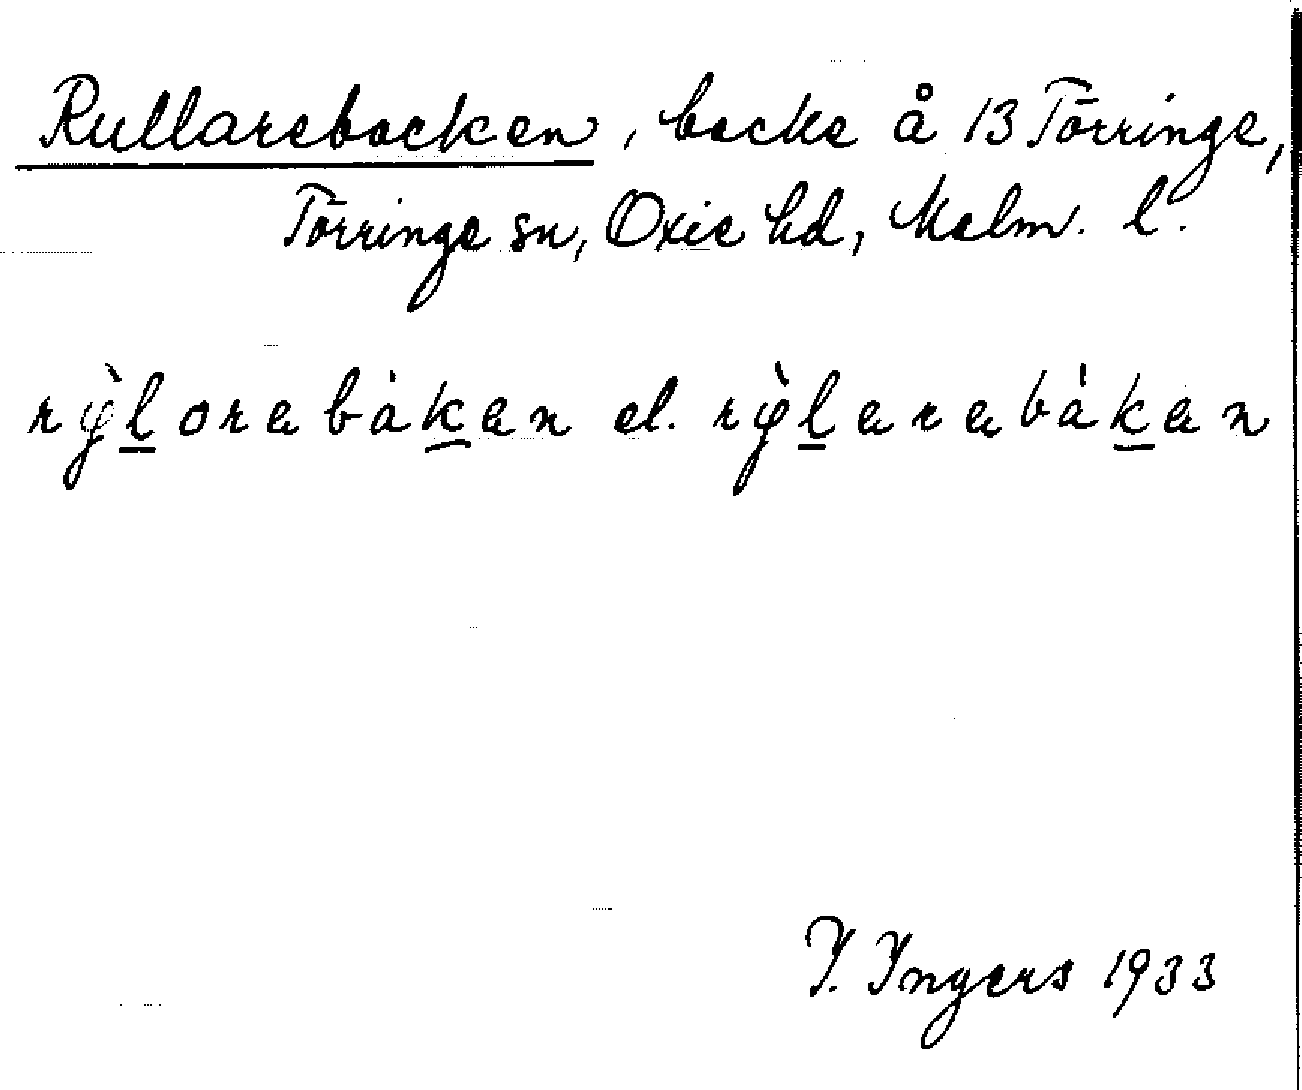 Rullarebacken, backe å 13 Törringe,
Törringe sn, Oxie hd, Malm. l.
rỳl̲orabák̲an el. rỳl̲arabák̲an
I. Ingers 1933